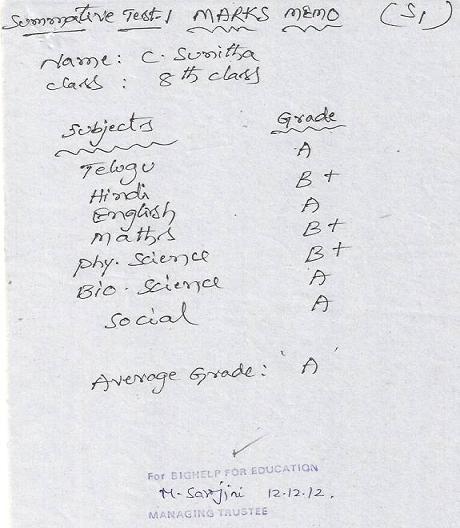 Summative Test-1 MARKS MEMO (S1)
Name: C. Sunitha
class : 8th class
Subjects Grade
Telugu A
Hindi B+
English A
Maths B+
Phy. Science B+
Bio. Science A
Social A
Average Grade: 'A'
For BIGHELP FOR EDUCATION
M. Sarojini 12.12.12.
MANAGING TRUSTEE